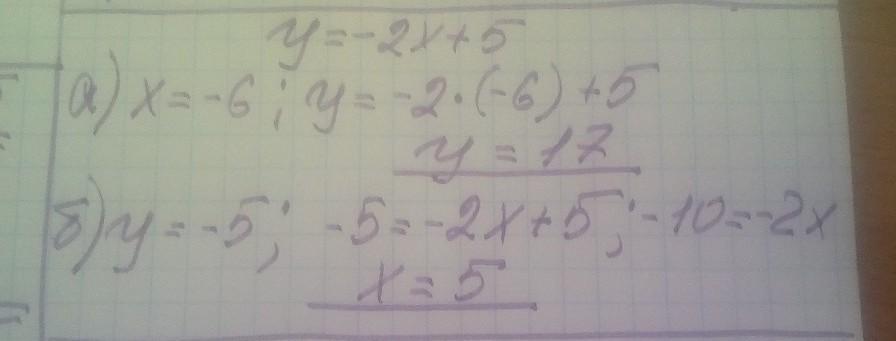 y=-2x+5
а) x=-6; y=-2·(-6)+5
y=17
б) y=-5; -5=-2x+5; -10=-2x
x=5